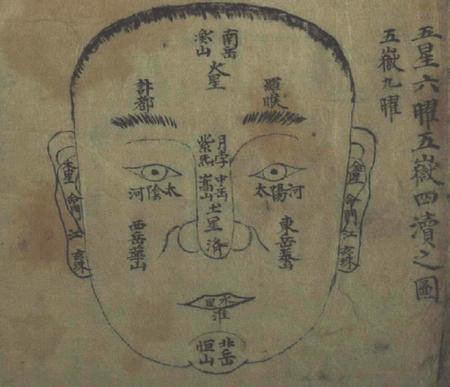 五星六曜五嶽四瀆之圖
五嶽九曜
南岳
衡山
火星
羅睺
計都
月孛
紫炁
中岳
嵩山
土星
濟
太陽河
太陰河
東岳泰山
西岳華山
金星
命門
江
玄珠
木星
命門
江
玄珠
水星
淮
北岳
恒山